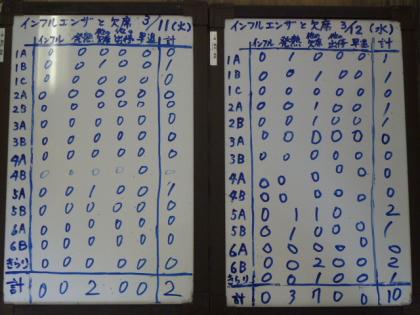 インフルエンザと欠席 3/11(火)
インフル 発熱 他の欠席 他の出停 早退 計
1A 0 0 0 0 0 0
1B 0 0 1 0 0 1
1C 0 0 0 0 0 0
2A 0 0 0 0 0 0
2B 0 0 0 0 0 0
3A 0 0 0 0 0 0
3B 0 0 0 0 0 0
4A 0 0 0 0 0 0
4B 0 0 0 0 0 0
5A 0 0 1 0 0 1
5B 0 0 0 0 0 0
6A 0 0 0 0 0 0
6B 0 0 0 0 0 0
きらり 0 0 0 0 0 0
計 0 0 2 0 0 2
インフルエンザと欠席 3/12(水)
インフル 発熱 他の欠席 他の出停 早退 計
1A 0 1 0 0 0 1
1B 0 0 1 0 0 1
1C 0 0 0 0 0 0
2A 0 0 1 0 0 1
2B 0 1 0 0 0 1
3A 0 0 0 0 0 0
3B 0 0 0 0 0 0
4A 0 0 0 0 0
4B 0 0 0 0 0
5A 0 1 1 0 0 2
5B 0 1 0 0 0 1
6A 0 0 0 0 0 0
6B 0 0 2 0 0 2
きらり 0 0 1 0 0 1
計 0 3 7 0 0 10